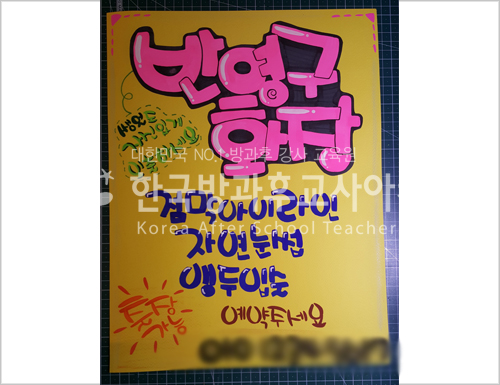 반영구
화장
쌩얼도
자신있게
대한민국 NO.1 방과후 강사 교육원
한국방과후교사아
Korea After School Teacher
점막아이라인
자연눈썹
앵두입술
출장
가능
예약주세요